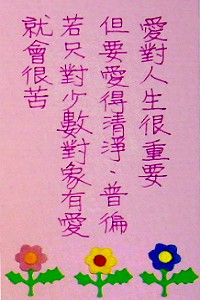 愛對人生很重要
但要愛得清淨、普徧
若只對少數對象有愛
就會很苦